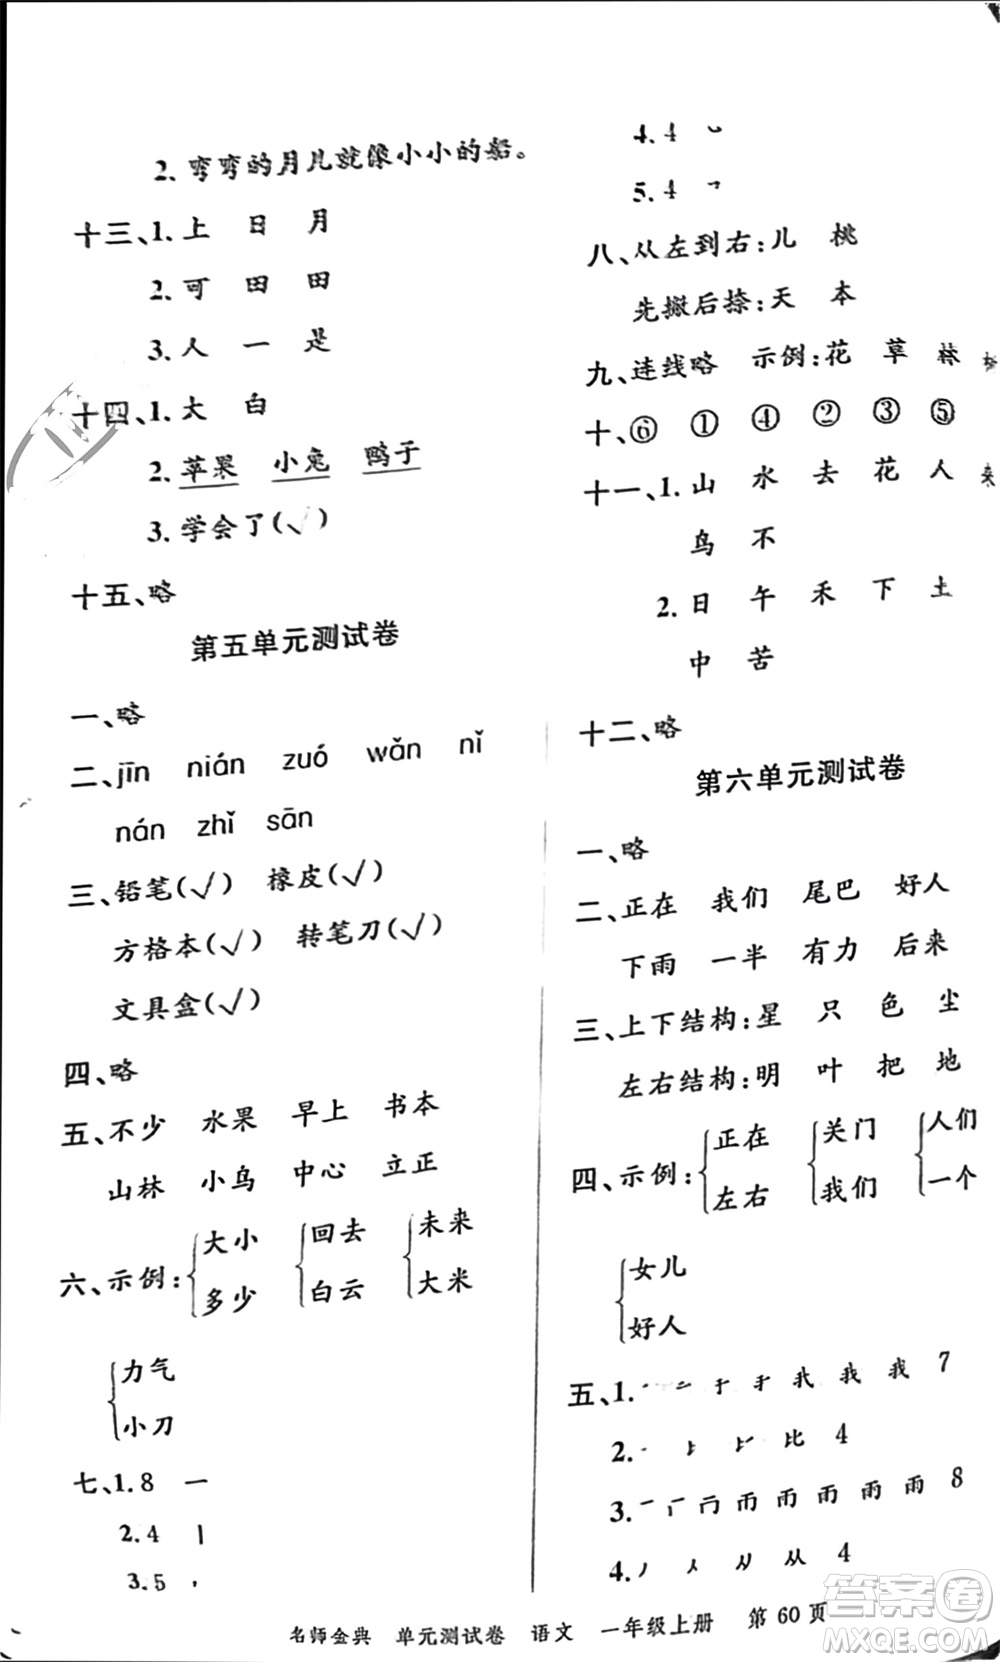 2. 弯弯的月儿就像小小的船。
十三、1. 上 日 月
2. 可 田 田
3. 人 一 是
十四、1. 大 白
2. 苹果 小兔 鸭子
3. 学会了(√)
十五、略
第五单元测试卷
一、略
二、jīn nián zuó wǎn nǐ
nán zhǐ sān
三、铅笔(√) 橡皮(√)
方格本(√) 转笔刀(√)
文具盒(√)
四、略
五、不少 水果 早上 书本
山林 小鸟 中心 立正
六、示例:{大小 多少 {回去 白云 {未来 大米
{力气 小刀
七、1. 8 一
2. 4 丨
3. 5 丶
4. 4
5. 4
八、从左到右:儿 桃
先撇后捺:天 本
九、连线略 示例:花 草 林
十、⑥ ① ④ ② ③ ⑤
十一、1. 山 水 去 花 人 来
鸟 不
2. 日 午 禾 下 土
中 苦
十二、略
第六单元测试卷
一、略
二、正在 我们 尾巴 好人
下雨 一半 有力 后来
三、上下结构:星 只 色 尘
左右结构:明 叶 把 地
四、示例:{正在 左右 {关门 我们 {人们 一个
{女儿 好人
五、1. 我 7
2. 比 4
3. 雨 雨 雨 8
4. 从 4
名师金典 单元测试卷 语文 一年级上册 第60页
答案圈
MXQE.COM